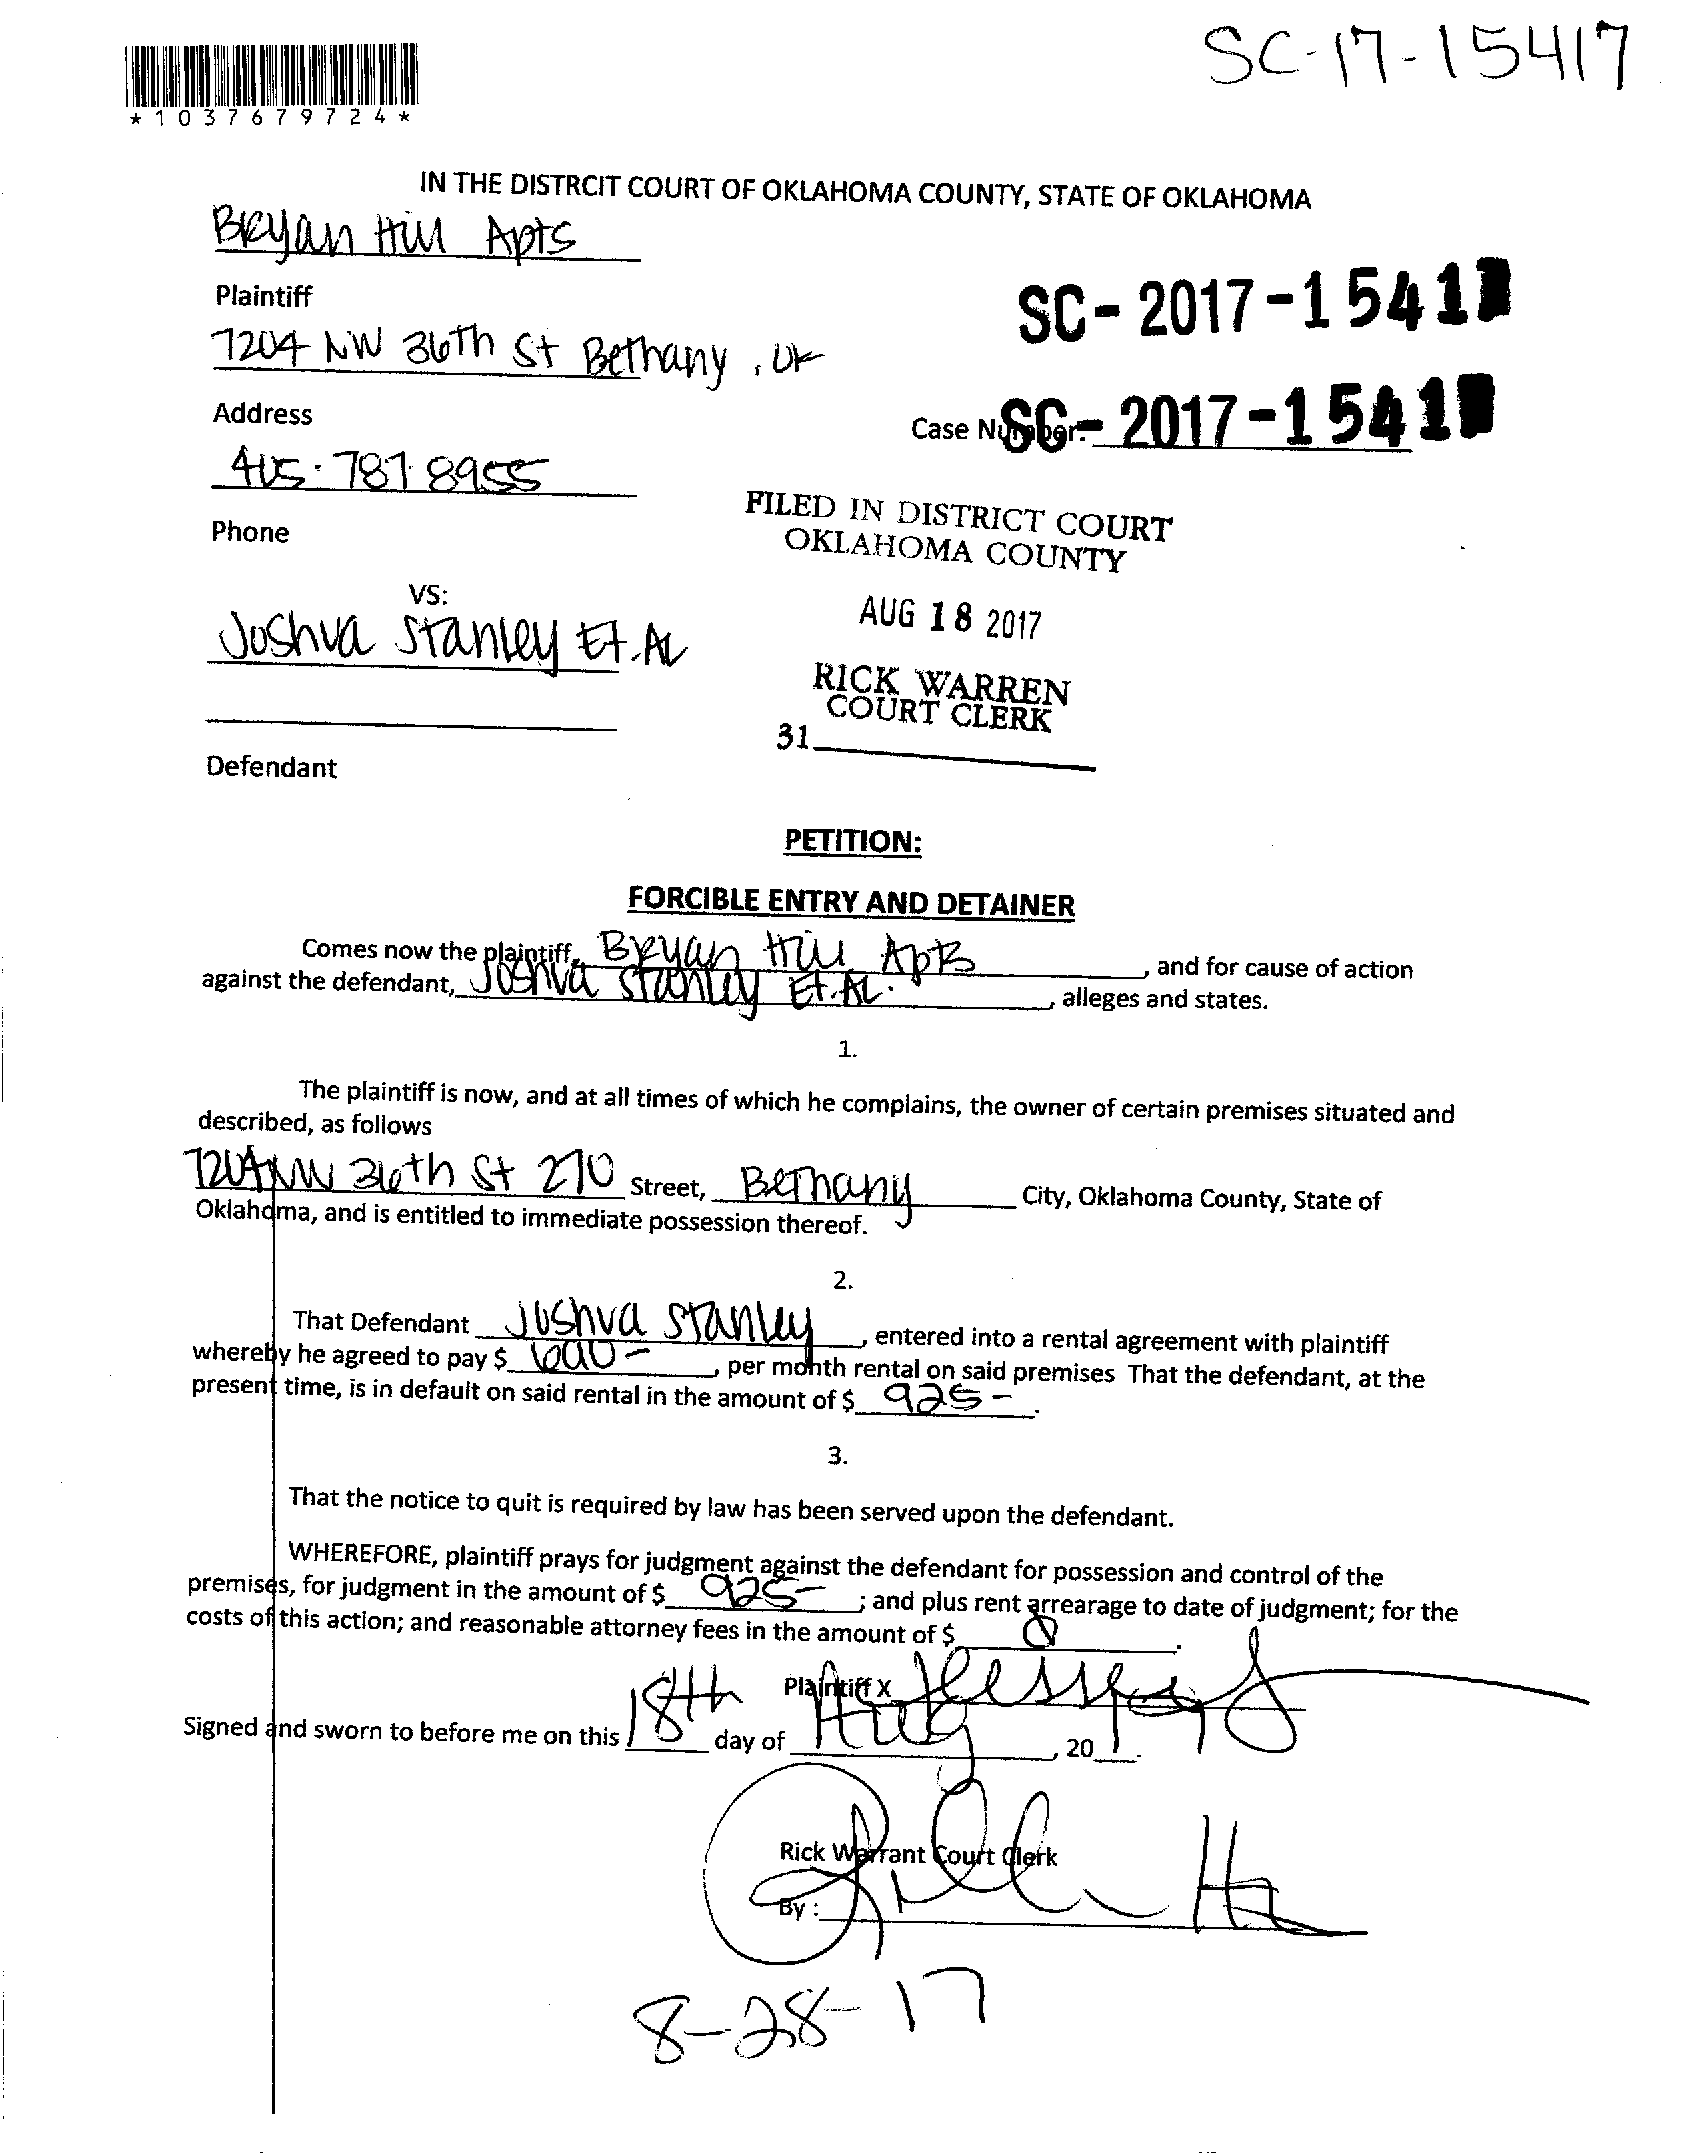 SC-17-15417
*1037679724*
IN THE DISTRCIT COURT OF OKLAHOMA COUNTY, STATE OF OKLAHOMA
Bryan Hill Apts
Plaintiff
SC-2017-1541
7204 NW 36th St Bethany, OK
Address
Case Number: SC-2017-1541
405-787-8955
FILED IN DISTRICT COURT
OKLAHOMA COUNTY
Phone
VS:
AUG 18 2017
Joshua Stanley Et.AL
RICK WARREN
COURT CLERK
31
Defendant
PETITION:
FORCIBLE ENTRY AND DETAINER
Comes now the plaintiff, Bryan Hill Apts, and for cause of action
against the defendant, Joshua Stanley Et.AL., alleges and states.
1.
The plaintiff is now, and at all times of which he complains, the owner of certain premises situated and
described, as follows
7204 NW 36th St 270 Street, Bethany City, Oklahoma County, State of
Oklahoma, and is entitled to immediate possession thereof.
2.
That Defendant Joshua Stanley, entered into a rental agreement with plaintiff
whereby he agreed to pay $ , per month rental on said premises That the defendant, at the
present time, is in default on said rental in the amount of $ 925-.
3.
That the notice to quit is required by law has been served upon the defendant.
WHEREFORE, plaintiff prays for judgment against the defendant for possession and control of the
premises, for judgment in the amount of $ 925- ; and plus rent arrearage to date of judgment; for the
costs of this action; and reasonable attorney fees in the amount of $ .
Plaintiff X
Signed and sworn to before me on this 18th day of Aug, 201 .
Rick Warrant Court Clerk
By :
8-28-17